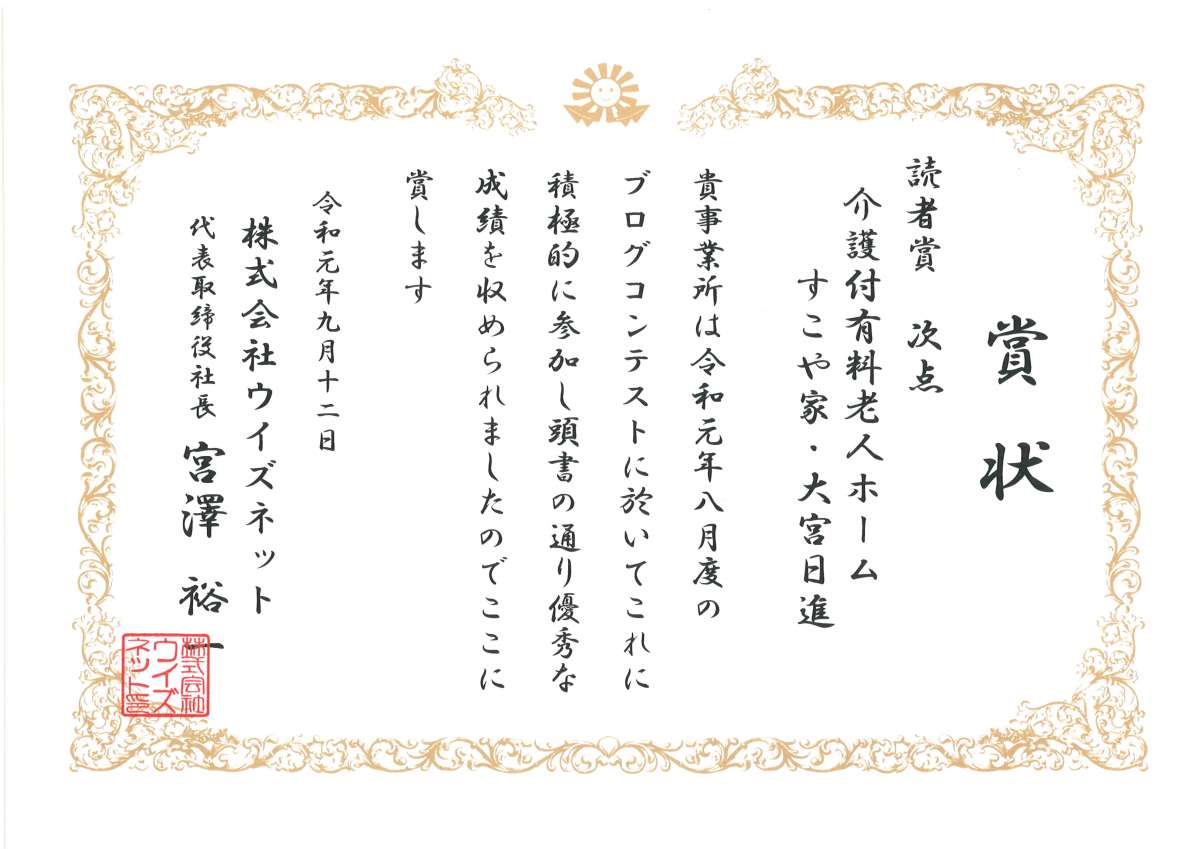 賞状
読者賞 次点
介護付有料老人ホーム
すこや家・大宮日進
貴事業所は令和元年八月度の
ブログコンテストに於いてこれに
積極的に参加し頭書の通り優秀な
成績を収められましたのでここに
賞します
令和元年九月十二日
株式会社ウイズネット
代表取締役社長 宮澤 裕一
株式会社
ウイズ
ネット印